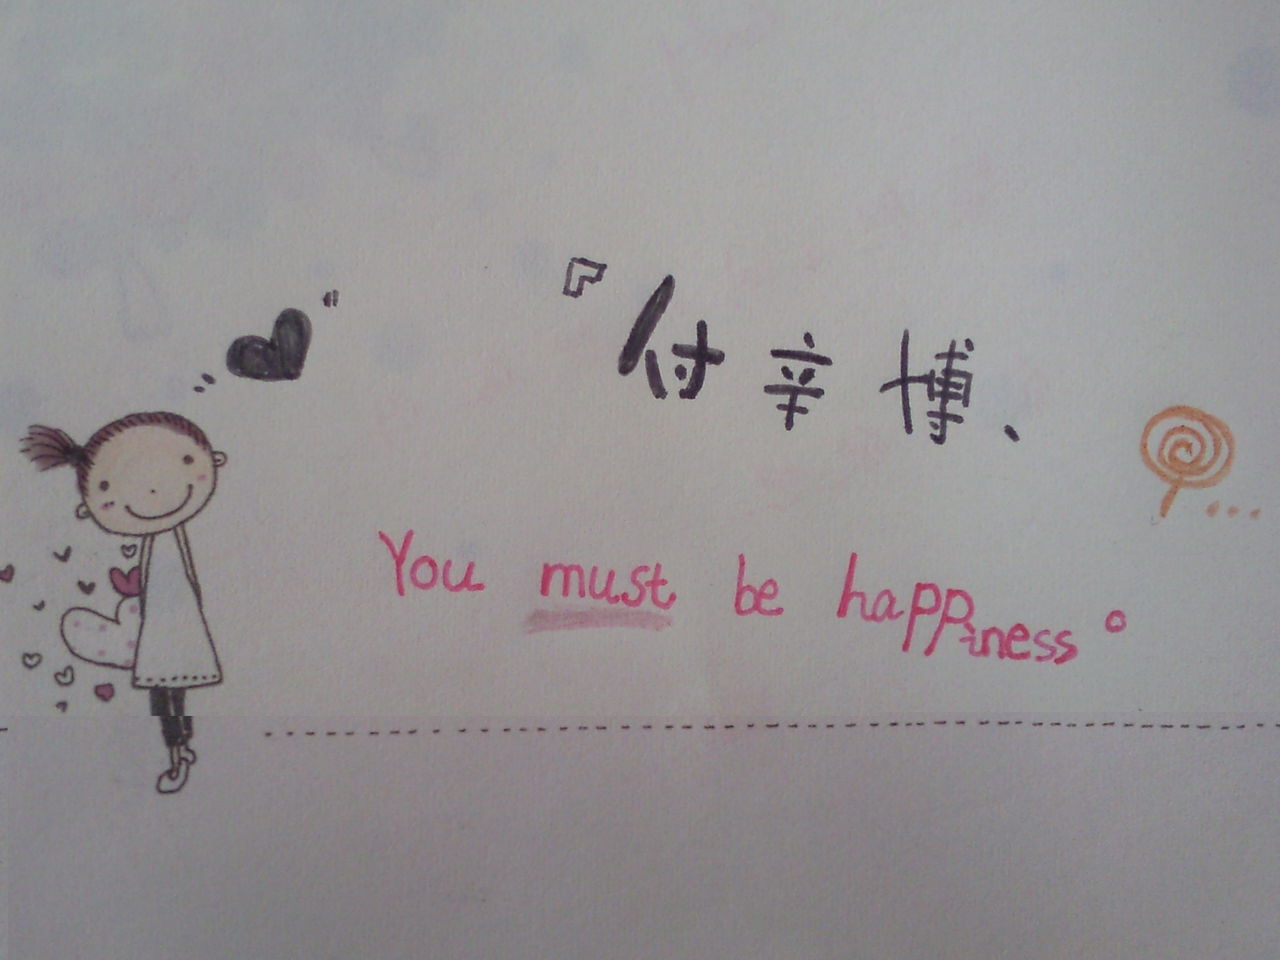 『付辛博、
You must be happiness。